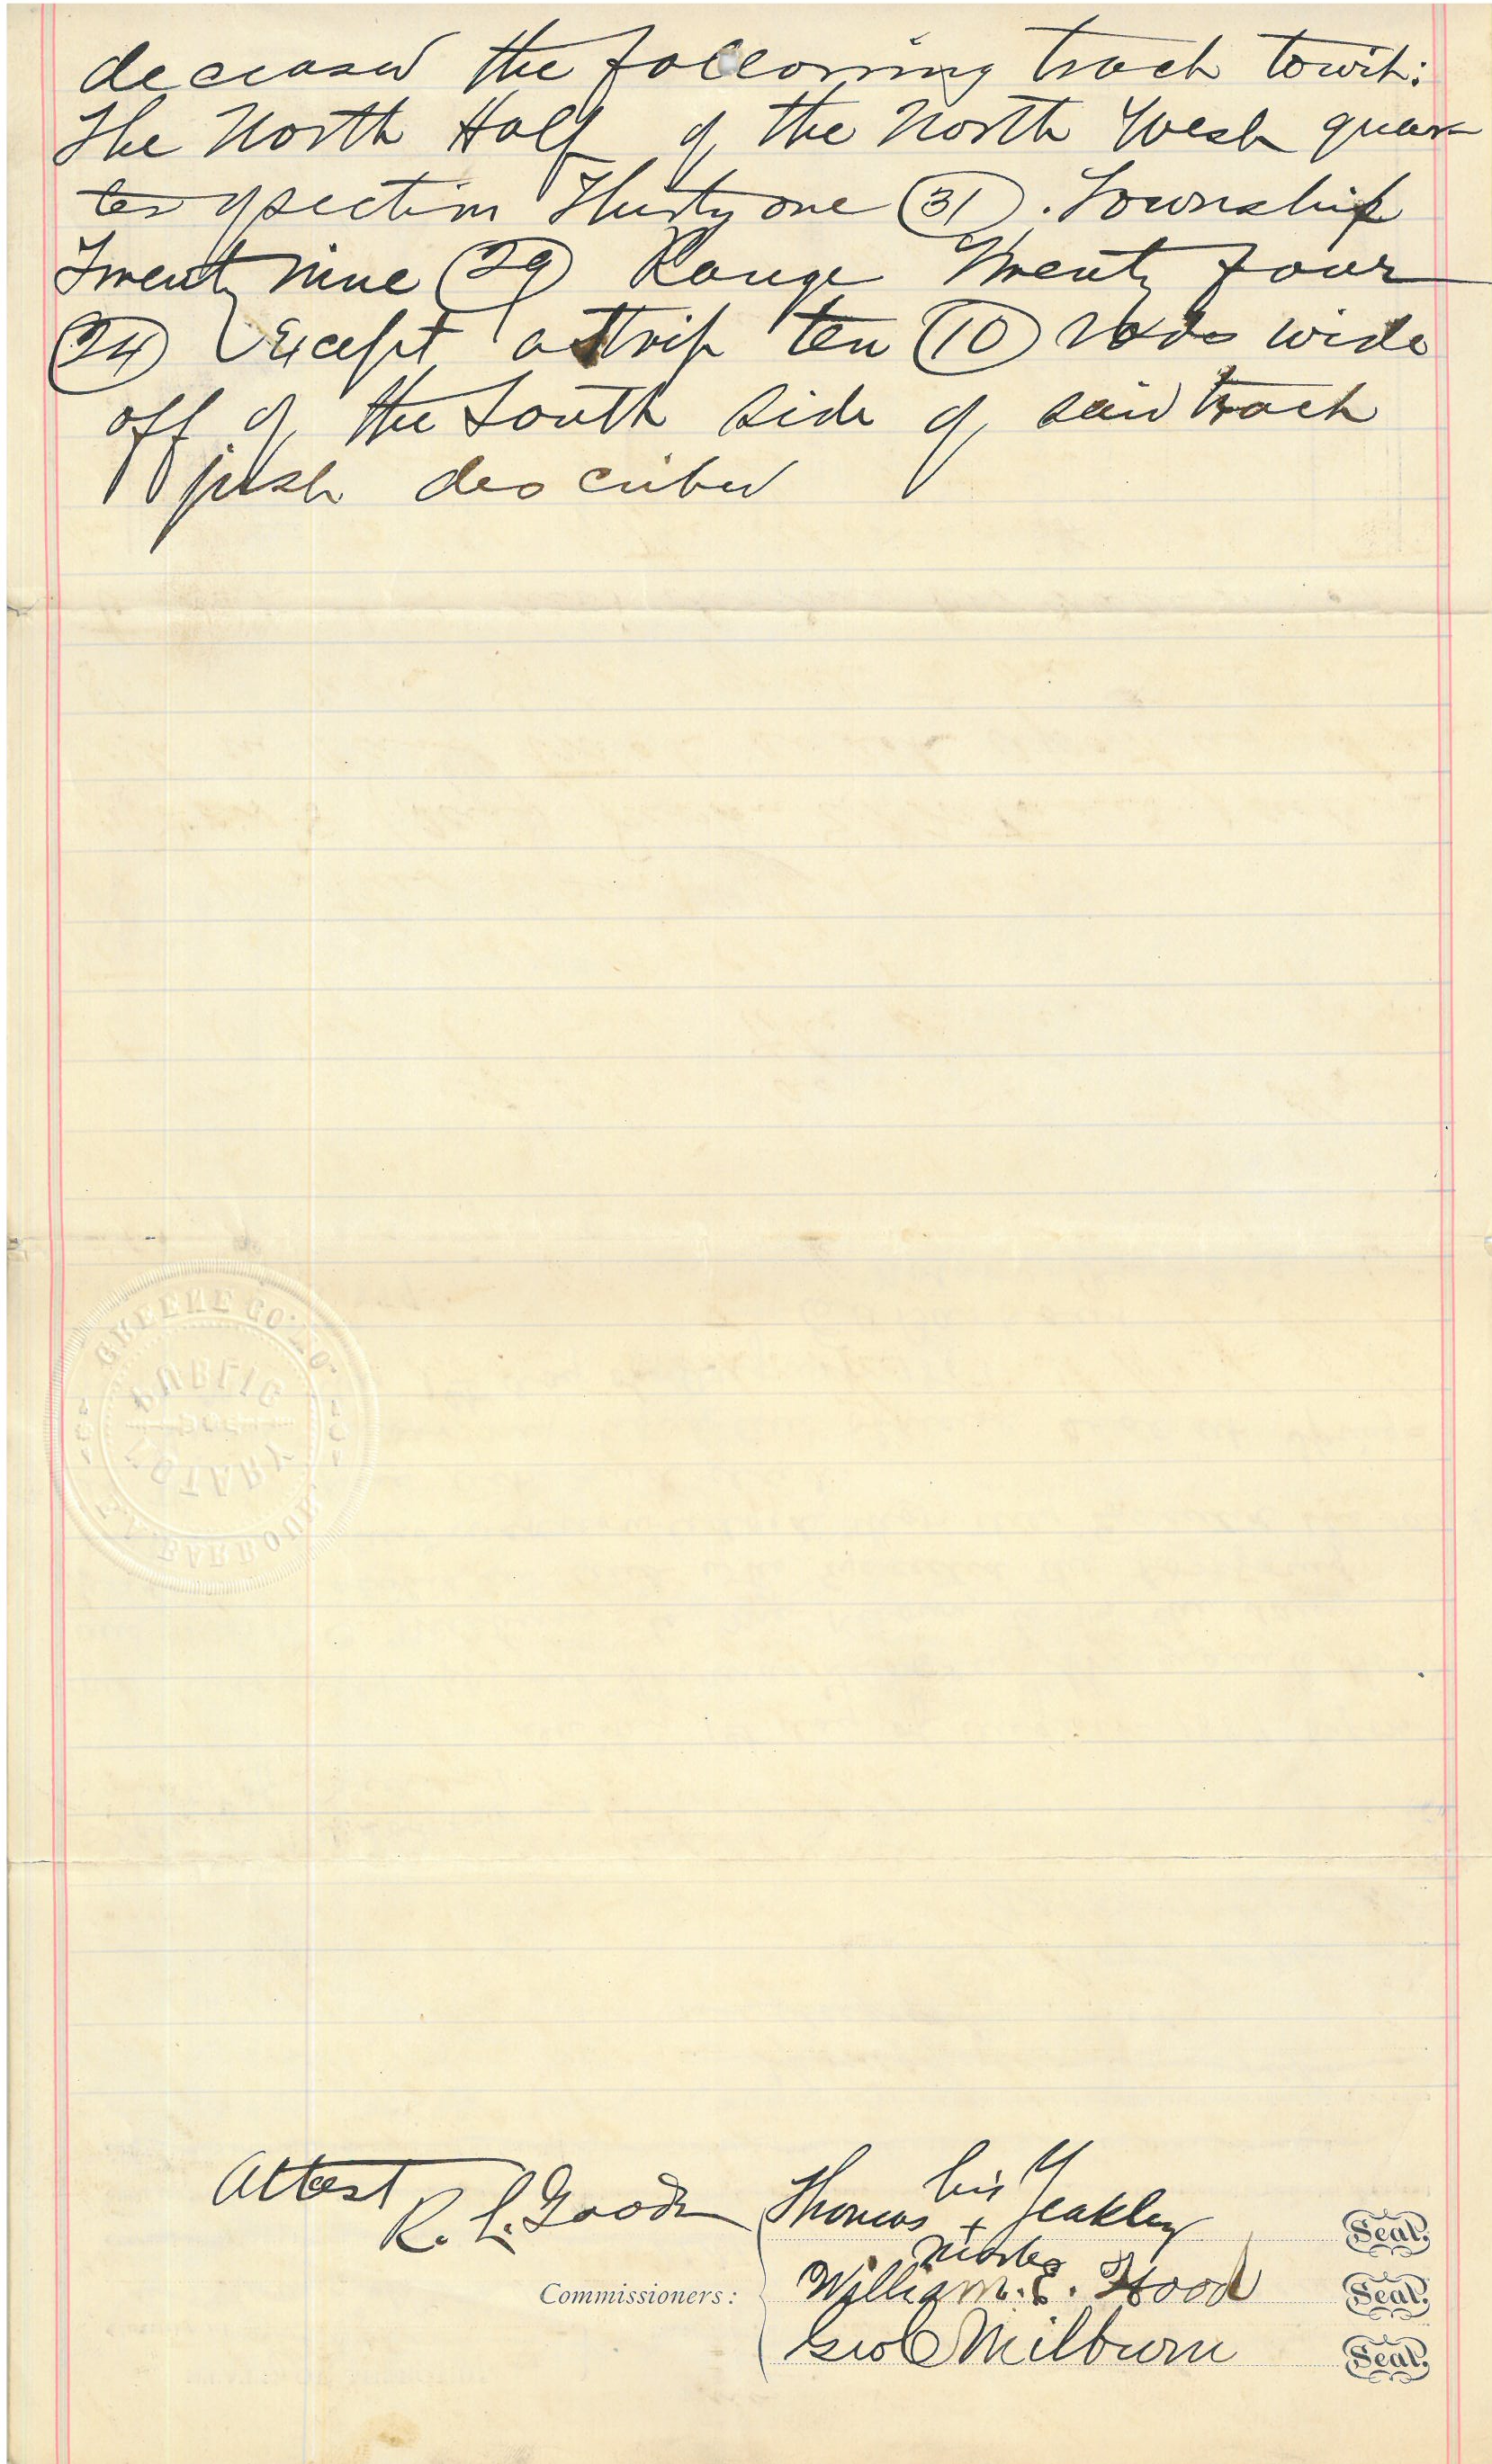 deceased the following tract towit:
The North Half of the North West quar
ter of section Thirty one (31). Township
Twenty nine (29) Range Twenty four
(24) Except a strip ten (10) rods wide
off of the South side of said tract
just described
GREENE CO. MO.
PUBLIC
NOTARY
BARBOUR
Attest
R. L. Goode
Thomas his + mark Yeakley
Seal.
Commissioners:
William. E. Hood
Seal.
Geo C Milburn
Seal.